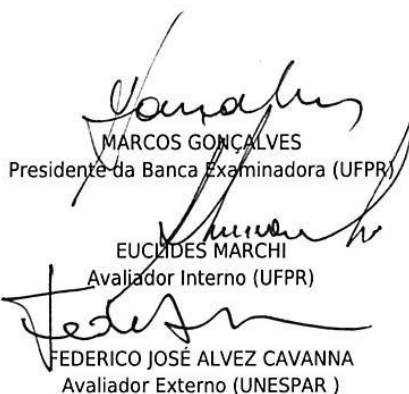 MARCOS GONÇALVES
Presidente da Banca Examinadora (UFPR)
EUCLIDES MARCHI
Avaliador Interno (UFPR)
FEDERICO JOSÉ ALVEZ CAVANNA
Avaliador Externo (UNESPAR )